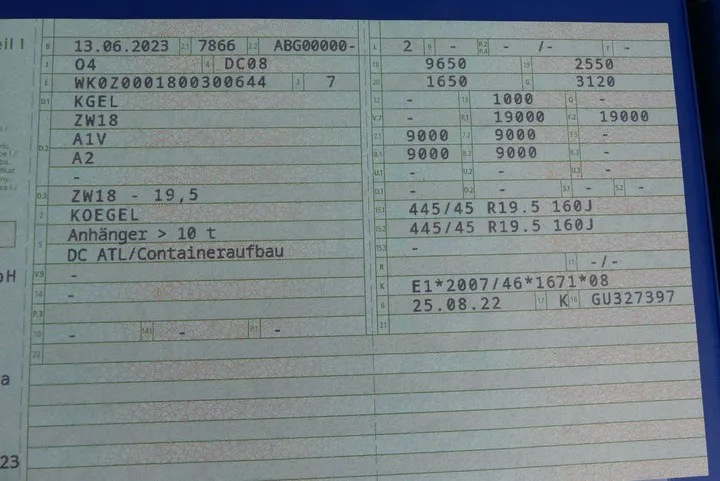 eil I
B 13.06.2023 2.1 7866 2.2 ABG00000-
J 04 4 DC08
E WK0Z0001800300644 3 7
D.1 KGEL
ZW18
D.2 A1V
A2
-
D.3 ZW18 - 19,5
2 KOEGEL
5 Anhänger > 10 t
DC ATL/Containeraufbau
V.9 -
14 -
P.3
10 - 14.1 - P.1 -
22
L 2 9 - P.2 P.4 - /- T -
18 9650 19 2550
20 1650 G 3120
12 - 13 1000 Q -
V.7 - F.1 19000 F.2 19000
7.1 9000 7.2 9000 7.3 -
8.1 9000 8.2 9000 8.3 -
U.1 - U.2 - U.3 -
O.1 - O.2 - S.1 - S.2 -
15.1 445/45 R19.5 160J
15.2 445/45 R19.5 160J
15.3 -
R 11 -/-
K E1*2007/46*1671*08
6 25.08.22 17 K 16 GU327397
21
bH
a
23